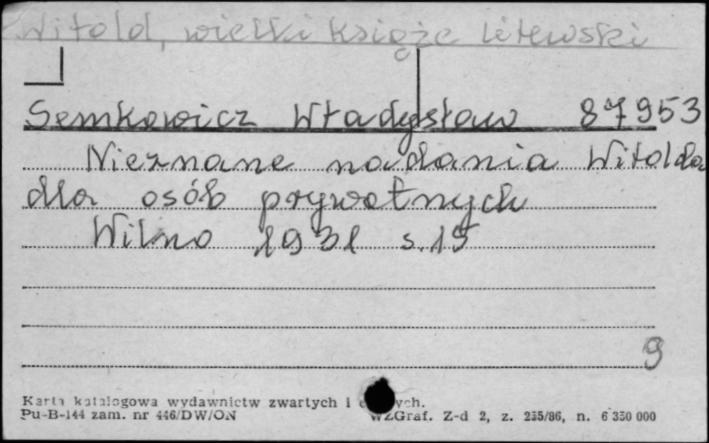 Witold, wielki książe litewski
Semkowicz Władysław 87953
Nieznane nadania Witolda
dla osób prywatnych
Wilno 1931 s.15
9
Karta katalogowa wydawnictw zwartych i ch.
Pu-B-144 zam. nr 446/DW/ON WZGraf. Z-d 2, z. 235/86, n. 6 350 000